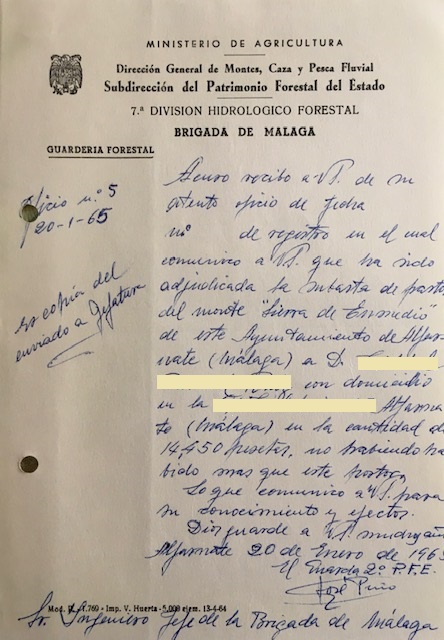 MINISTERIO DE AGRICULTURA
Dirección General de Montes, Caza y Pesca Fluvial
Subdirección del Patrimonio Forestal del Estado
7.ª DIVISION HIDROLOGICO FORESTAL
BRIGADA DE MALAGA
GUARDERIA FORESTAL
Oficio n.º 5
20-1-65
Es copia del
enviado a Jefatura
Acuso recibo a V.I. de su
atento oficio de fecha
nº de registro en el cual
comunico a V.I. que ha sido
adjudicada la subasta de pastos
del monte "Sierra de Enmedio"
de este Ayuntamiento de Alfar
nate (Málaga) a D.
con domicilio
en la Alfarna
te (Málaga) en la cantidad de
14,450 pesetas, no habiendo ha
bido mas que este postor.
Lo que comunico a V.I. para
su conocimiento y efectos.
Dios guarde a V.I. muchos añ
Alfarnate 20 de Enero de 1965
El Guarda 2º P.F.E.
José
Mod. 1.769 - Imp. V. Huerta - 5.000 ejem. 13-4-64
Sr. Ingeniero Jefe de la Brigada de Málaga